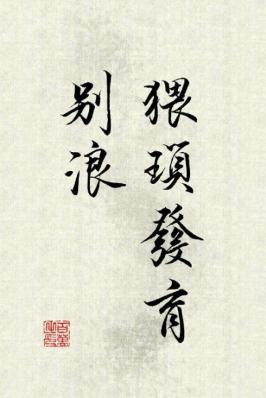 猥瑣發育
别浪